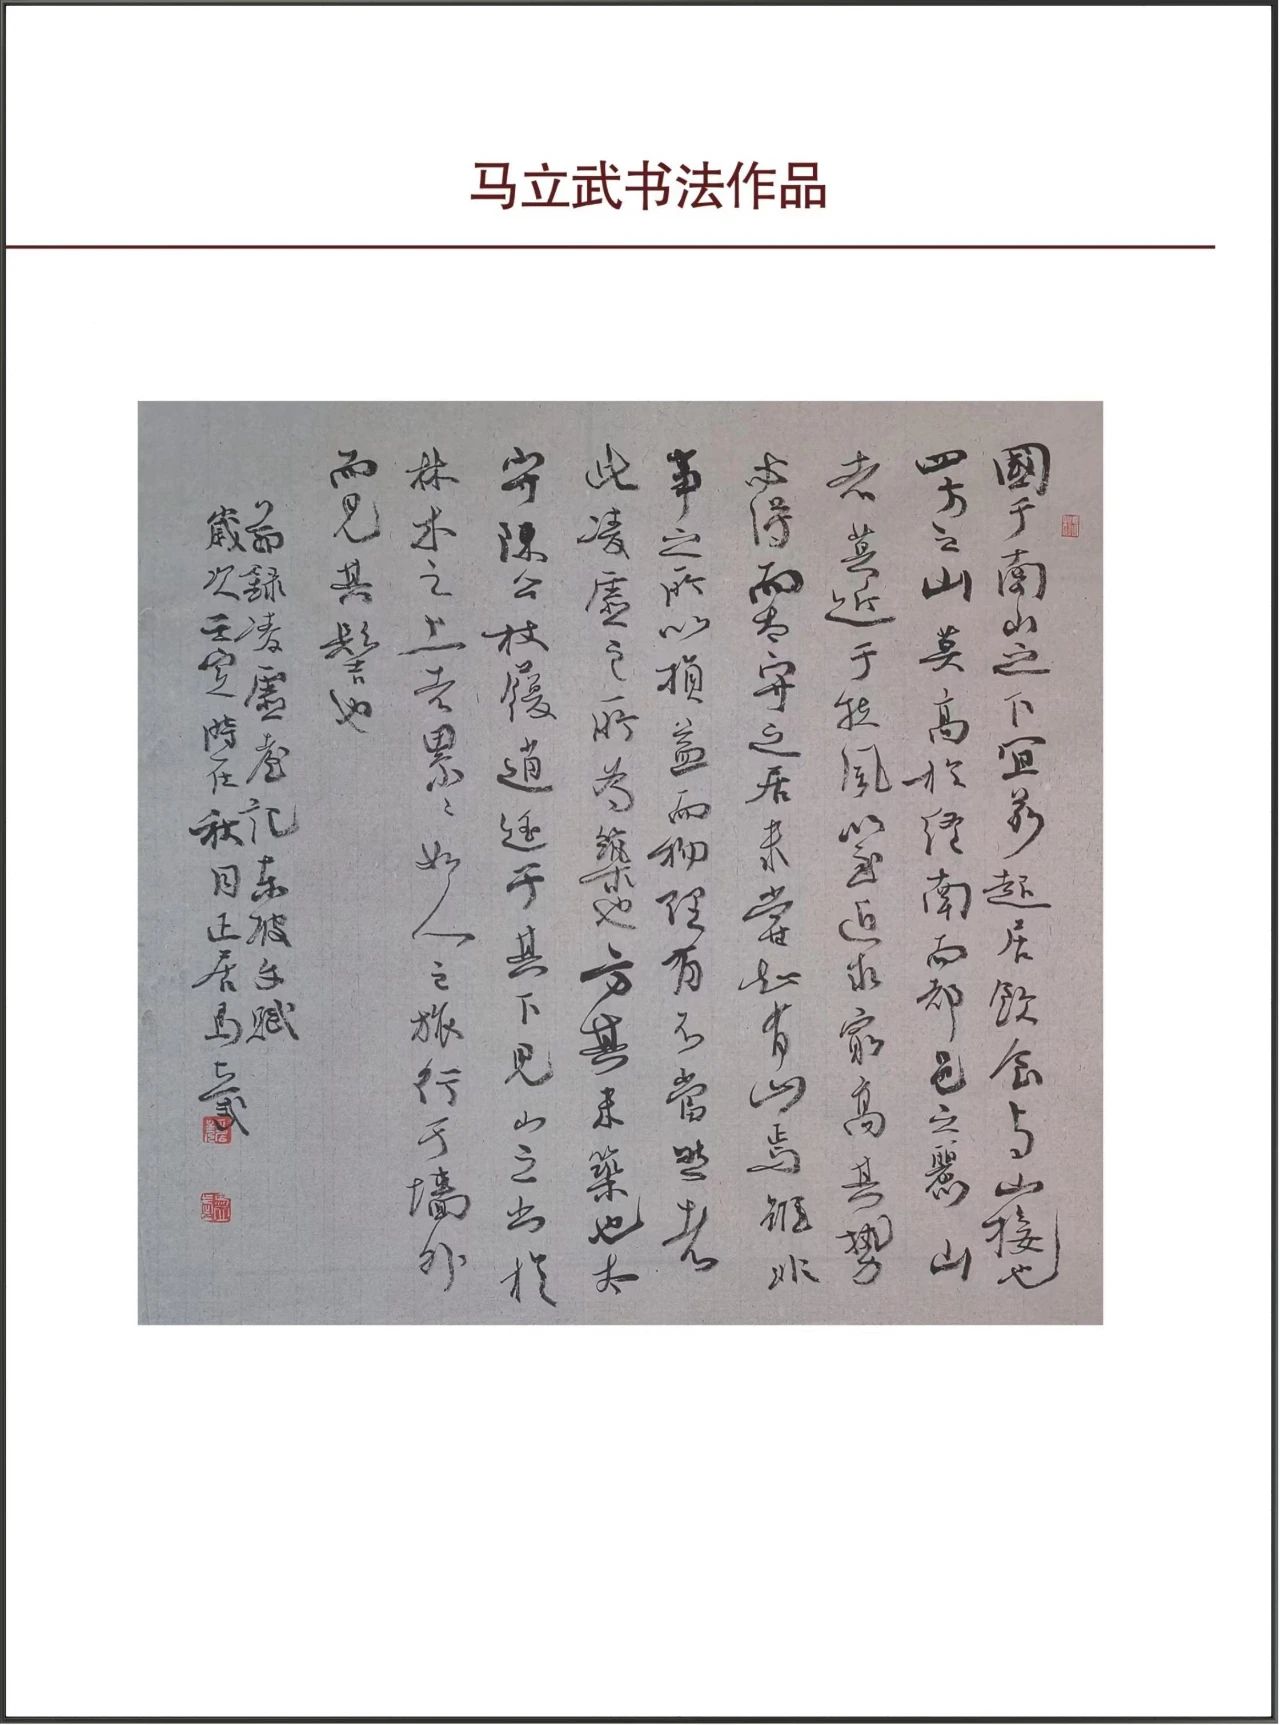 马立武书法作品
國于南山之下宜若起居飲食与山接也
四方之山莫高於終南而都邑之麗山
者莫近于扶風以至近求最高其勢
必得而太守之居未嘗知有山焉雖非
事之所以損益而物理有不當然者
此凌虛之所為築也方其未築也太
守陳公杖履逍遥于其下見山之出於
林木之上者累々如人之旅行于墻外
而見其髻也
録凌虛臺記東坡賦
歲次壬寅時在秋月正居馬立武